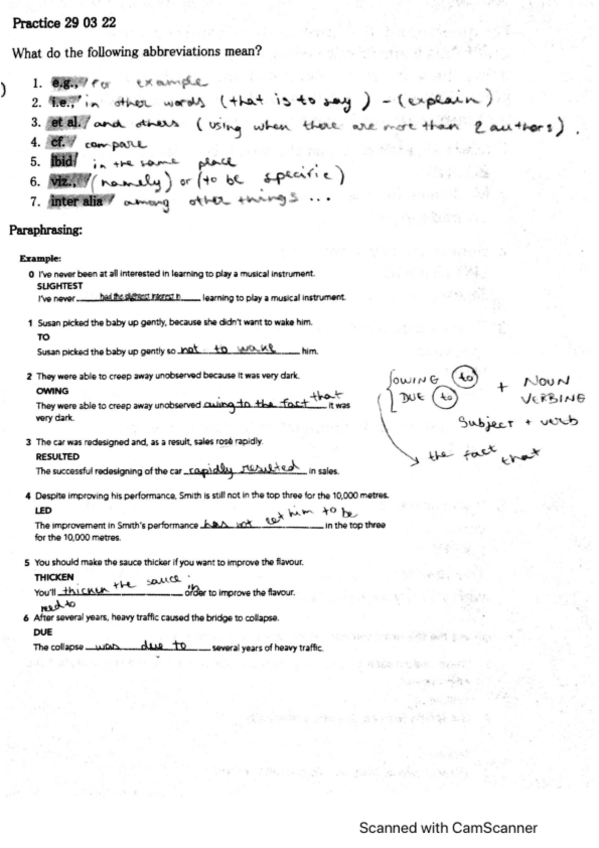 Practice 29 03 22
What do the following abbreviations mean?
)
1. e.g., / for example
2. i.e., / in other words (that is to say) - (explain)
3. et al. / and others (using when there are more than 2 authors).
4. cf. / compare
5. ibid / in the same place
6. viz., / (namely) or (to be specific)
7. inter alia / among other things ...
Paraphrasing:
Example:
0 I've never been at all interested in learning to play a musical instrument.
SLIGHTEST
I've never had the slightest interest in learning to play a musical instrument.
1 Susan picked the baby up gently, because she didn't want to wake him.
TO
Susan picked the baby up gently so not to wake him.
2 They were able to creep away unobserved because it was very dark.
OWING
They were able to creep away unobserved owing to the fact that it was
very dark.
OWING to
DUE to
+ NOUN
VERBING
Subject + verb
the fact that
3 The car was redesigned and, as a result, sales rose rapidly.
RESULTED
The successful redesigning of the car rapidly resulted in sales.
4 Despite improving his performance, Smith is still not in the top three for the 10,000 metres.
LED
The improvement in Smith's performance has not let him to be in the top three
for the 10,000 metres.
5 You should make the sauce thicker if you want to improve the flavour.
THICKEN
You'll need to thicken the sauce in order to improve the flavour.
6 After several years, heavy traffic caused the bridge to collapse.
DUE
The collapse was due to several years of heavy traffic.
Scanned with CamScanner